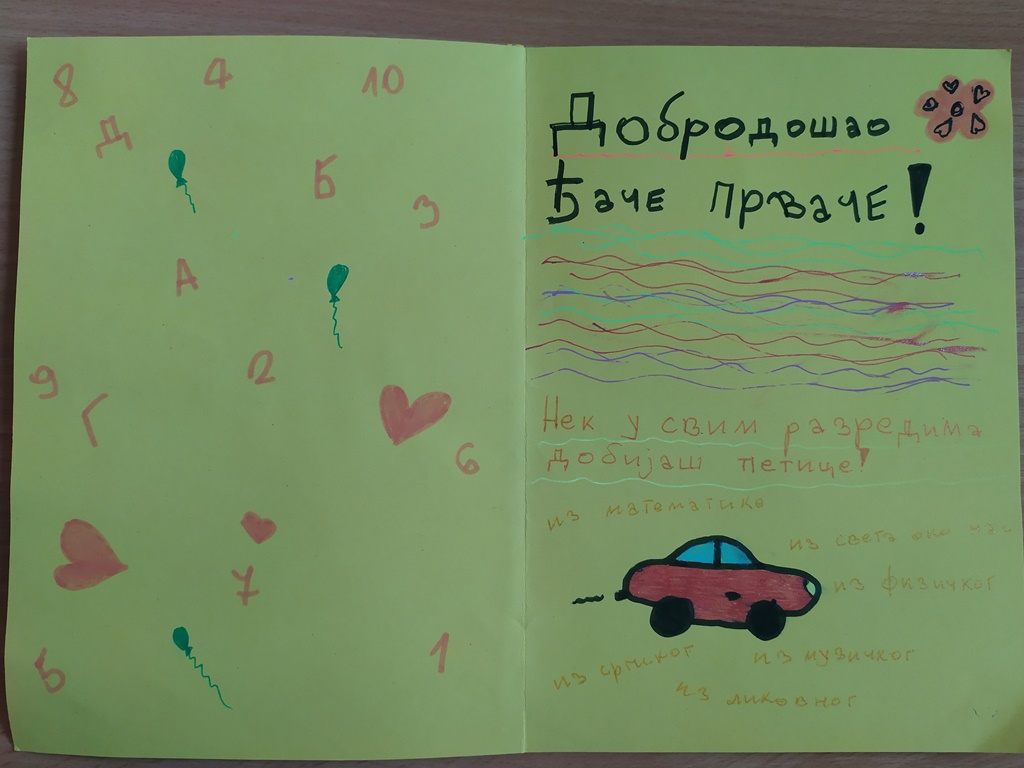 8 4 10
Д
Б
З
А
9 2
Г
6
7
5 1
Добродошао
Ђаче прваче!
Нек у свим разредима
добијаш петице!
из математике
из света око нас
из физичког
из српског
из музичког
из ликовног